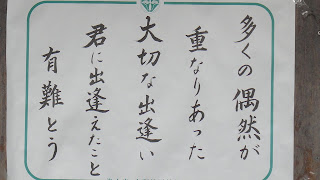 多くの偶然が
重なりあった
大切な出逢い
君に出逢えたこと
有難とう